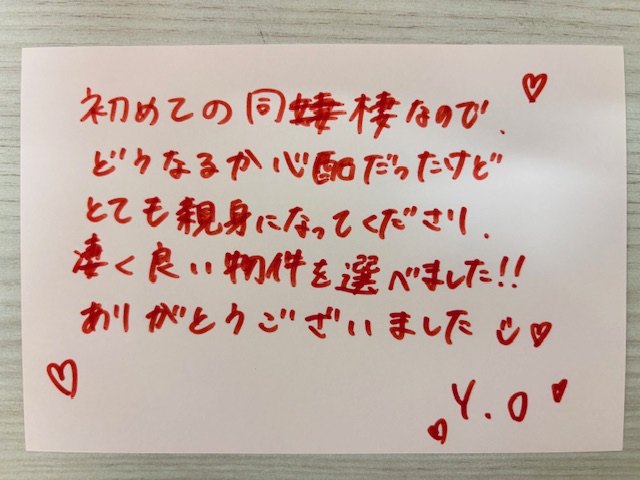 初めての同棲なので、
どうなるか心配だったけど
とても親身になってくださり、
凄く良い物件を選べました!!
ありがとうございました
Y.O